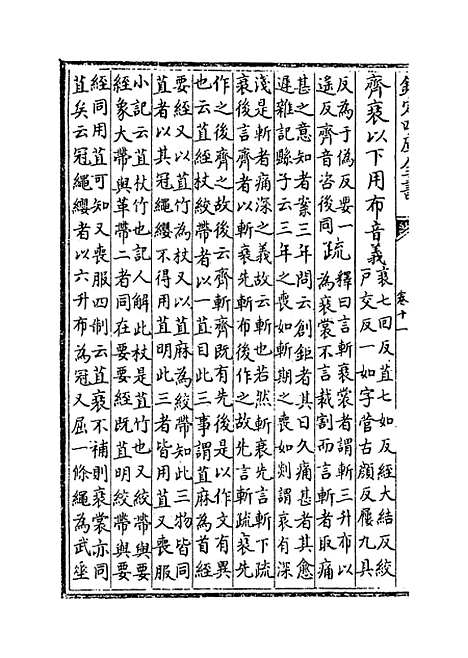 欽定四庫全書 卷十一
齊衰以下用布音義衰七回反苴七如反絰大結反絞
戶交反一如字菅古顏反屨九具
反為于偽反要一
遙反齊音咨後同
疏釋曰言斬衰裳者謂斬三升布以
為衰裳不言裁割而言斬者取痛
甚之意知者案三年問云創鉅者其日久痛甚者其愈
遲雜記縣子云三年之喪如斬期之喪如剡謂哀有深
淺是斬者痛深之義故云斬也若然斬衰先言斬下疏
衰後言齊者以斬衰先斬布後作之故先言斬疏衰先
作之後齊之故後云齊斬齊既有先後是以作文有異
也云苴絰杖絞帶者以一苴目此三事謂苴麻為首絰
要絰又以苴竹為杖又以苴麻為絞帶知此三物皆同
苴者以其冠繩纓不得用苴明此三者皆用苴又喪服
小記云苴杖竹也記人解此杖是苴竹也又絞帶與要
絰象大帶與革帶二者同在要要絰既苴明絞帶與要
絰同用苴可知又喪服四制云苴衰不補則衰裳亦同
苴矣云冠繩纓者以六升布為冠又屈一條繩為武垂